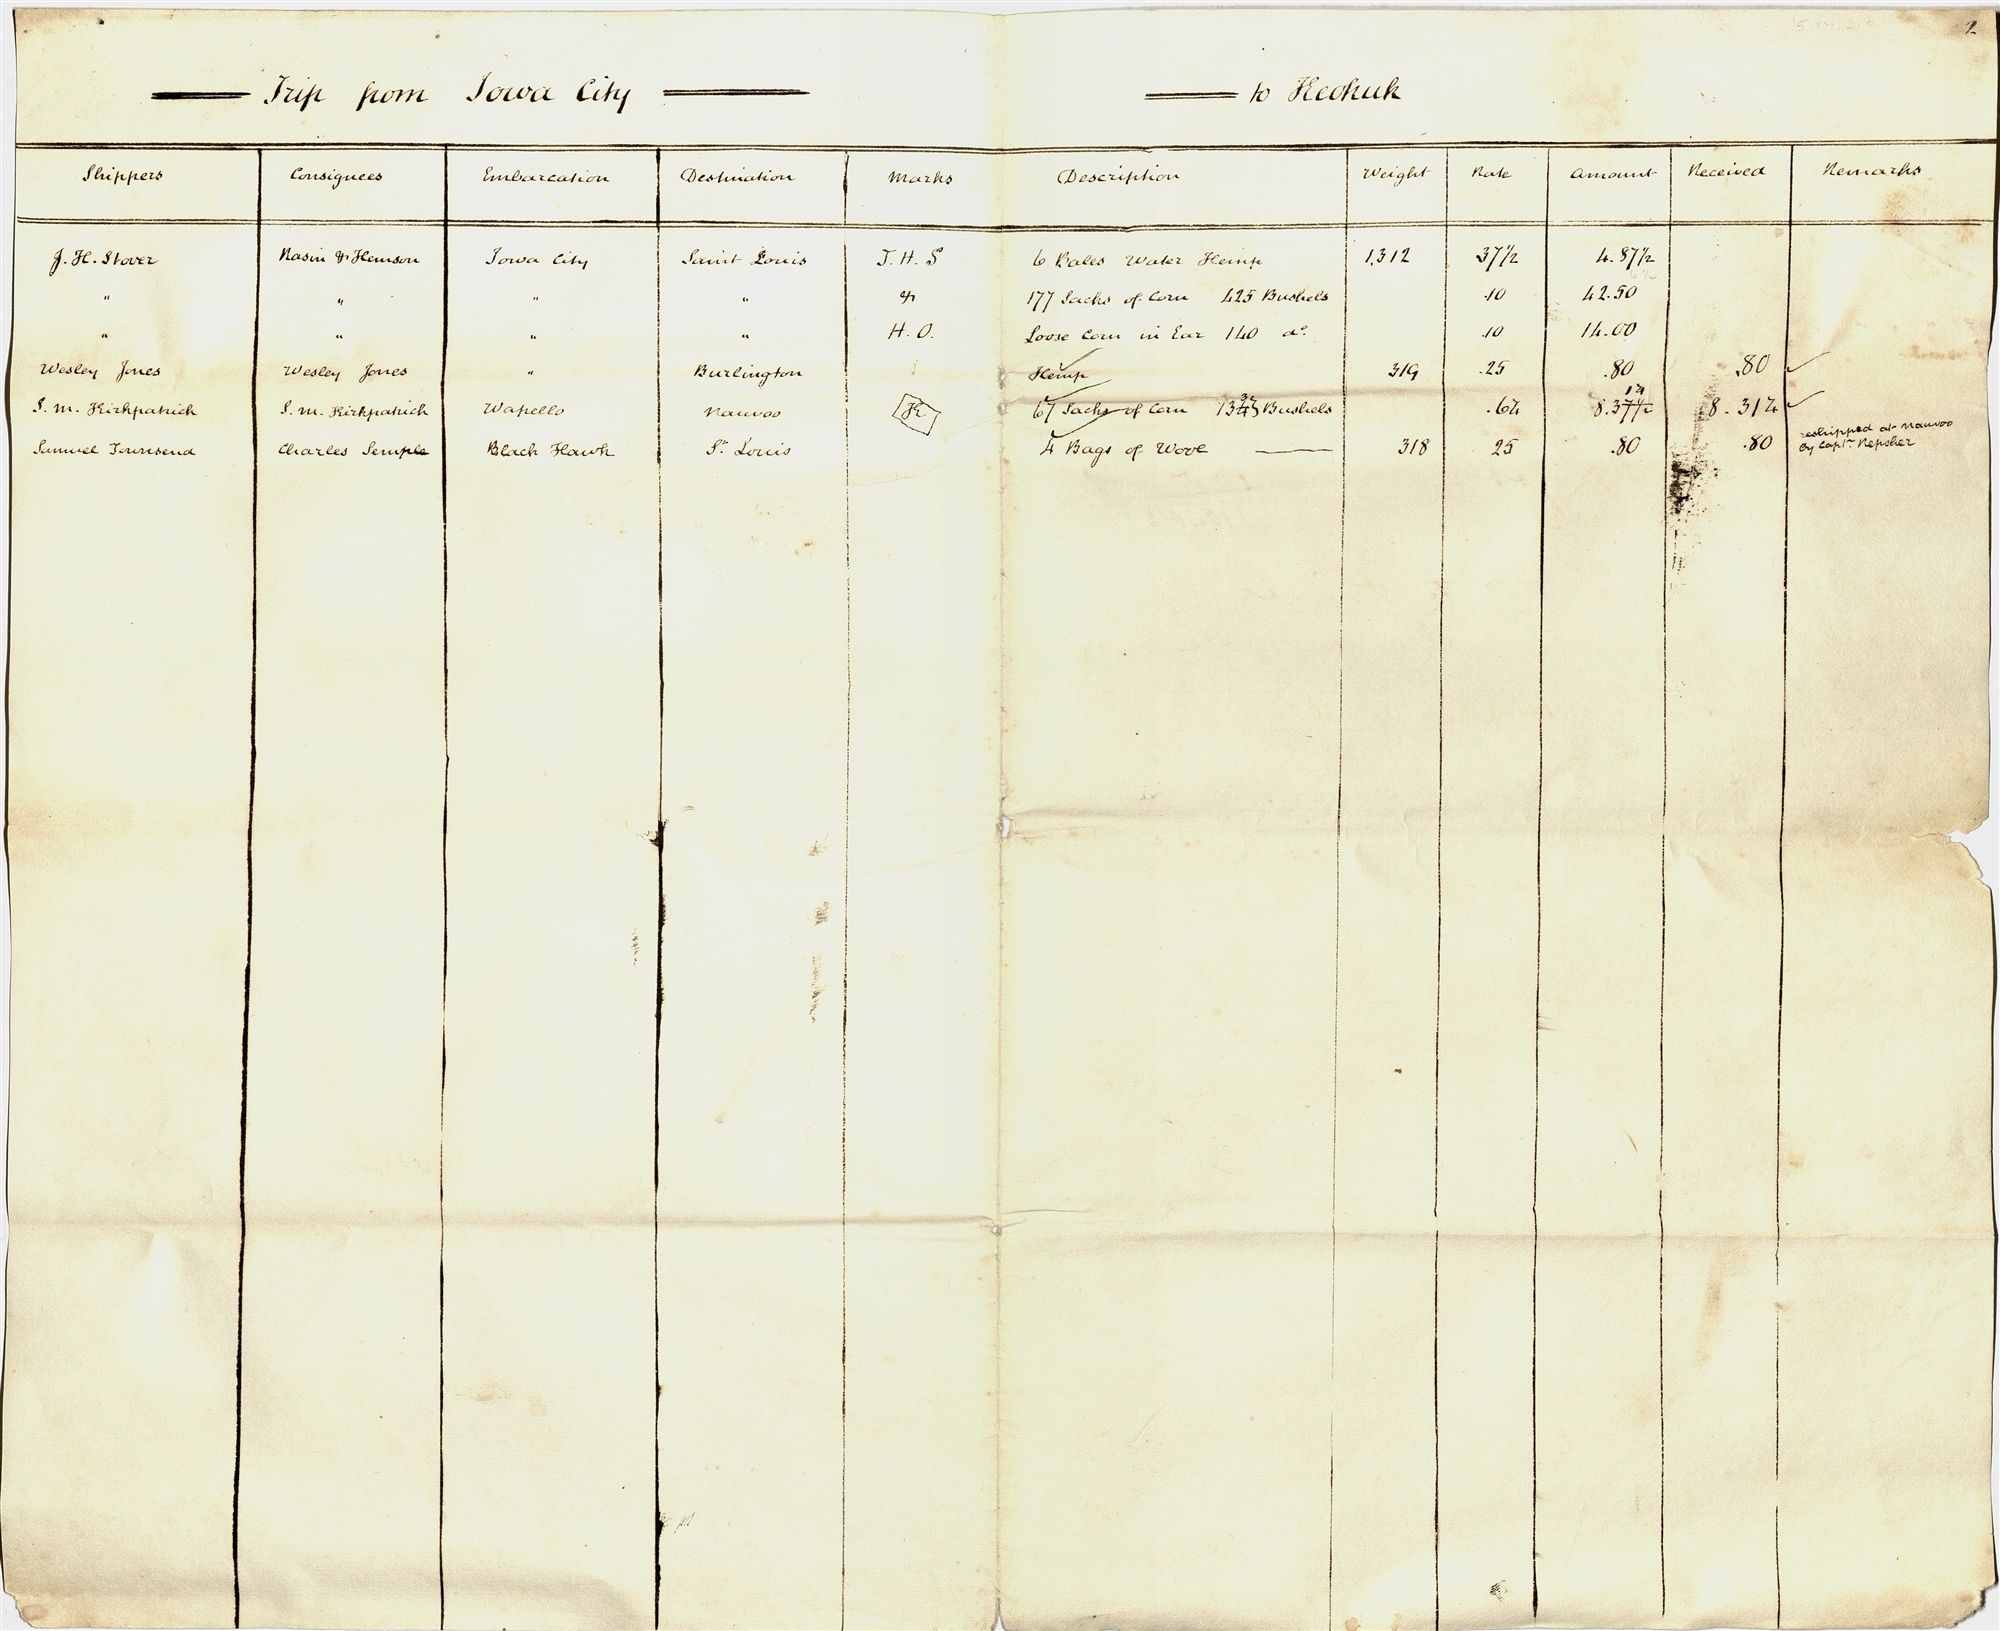 2
Trip from Iowa City to Keokuk
Shippers Consignees Embarcation Destination Marks Description Weight Rate Amount Received Remarks
J. H. Stover Nasin & Hemson Iowa City Saint Louis J. H. S 6 Bales Water Hemp 1,312 37 1/2 4.87 1/2
" " " " & 177 Sacks of Corn 425 Bushels .10 42.50
" " " " H. O. Loose Corn in Ear 140 do. .10 14.00
Wesley Jones Wesley Jones " Burlington Hemp 319 .25 .80 .80
S. M. Kirkpatrick S. M. Kirkpatrick Wapello Nauvoo K 67 Sacks of Corn Bushels .6 1/4 8.37 1/2 8.31 1/4
Samuel Townsend Charles Semple Black Hawk St. Louis 4 Bags of Wool 318 25 .80 .80 reshipped at Nauvoo
by Capt. Repsher